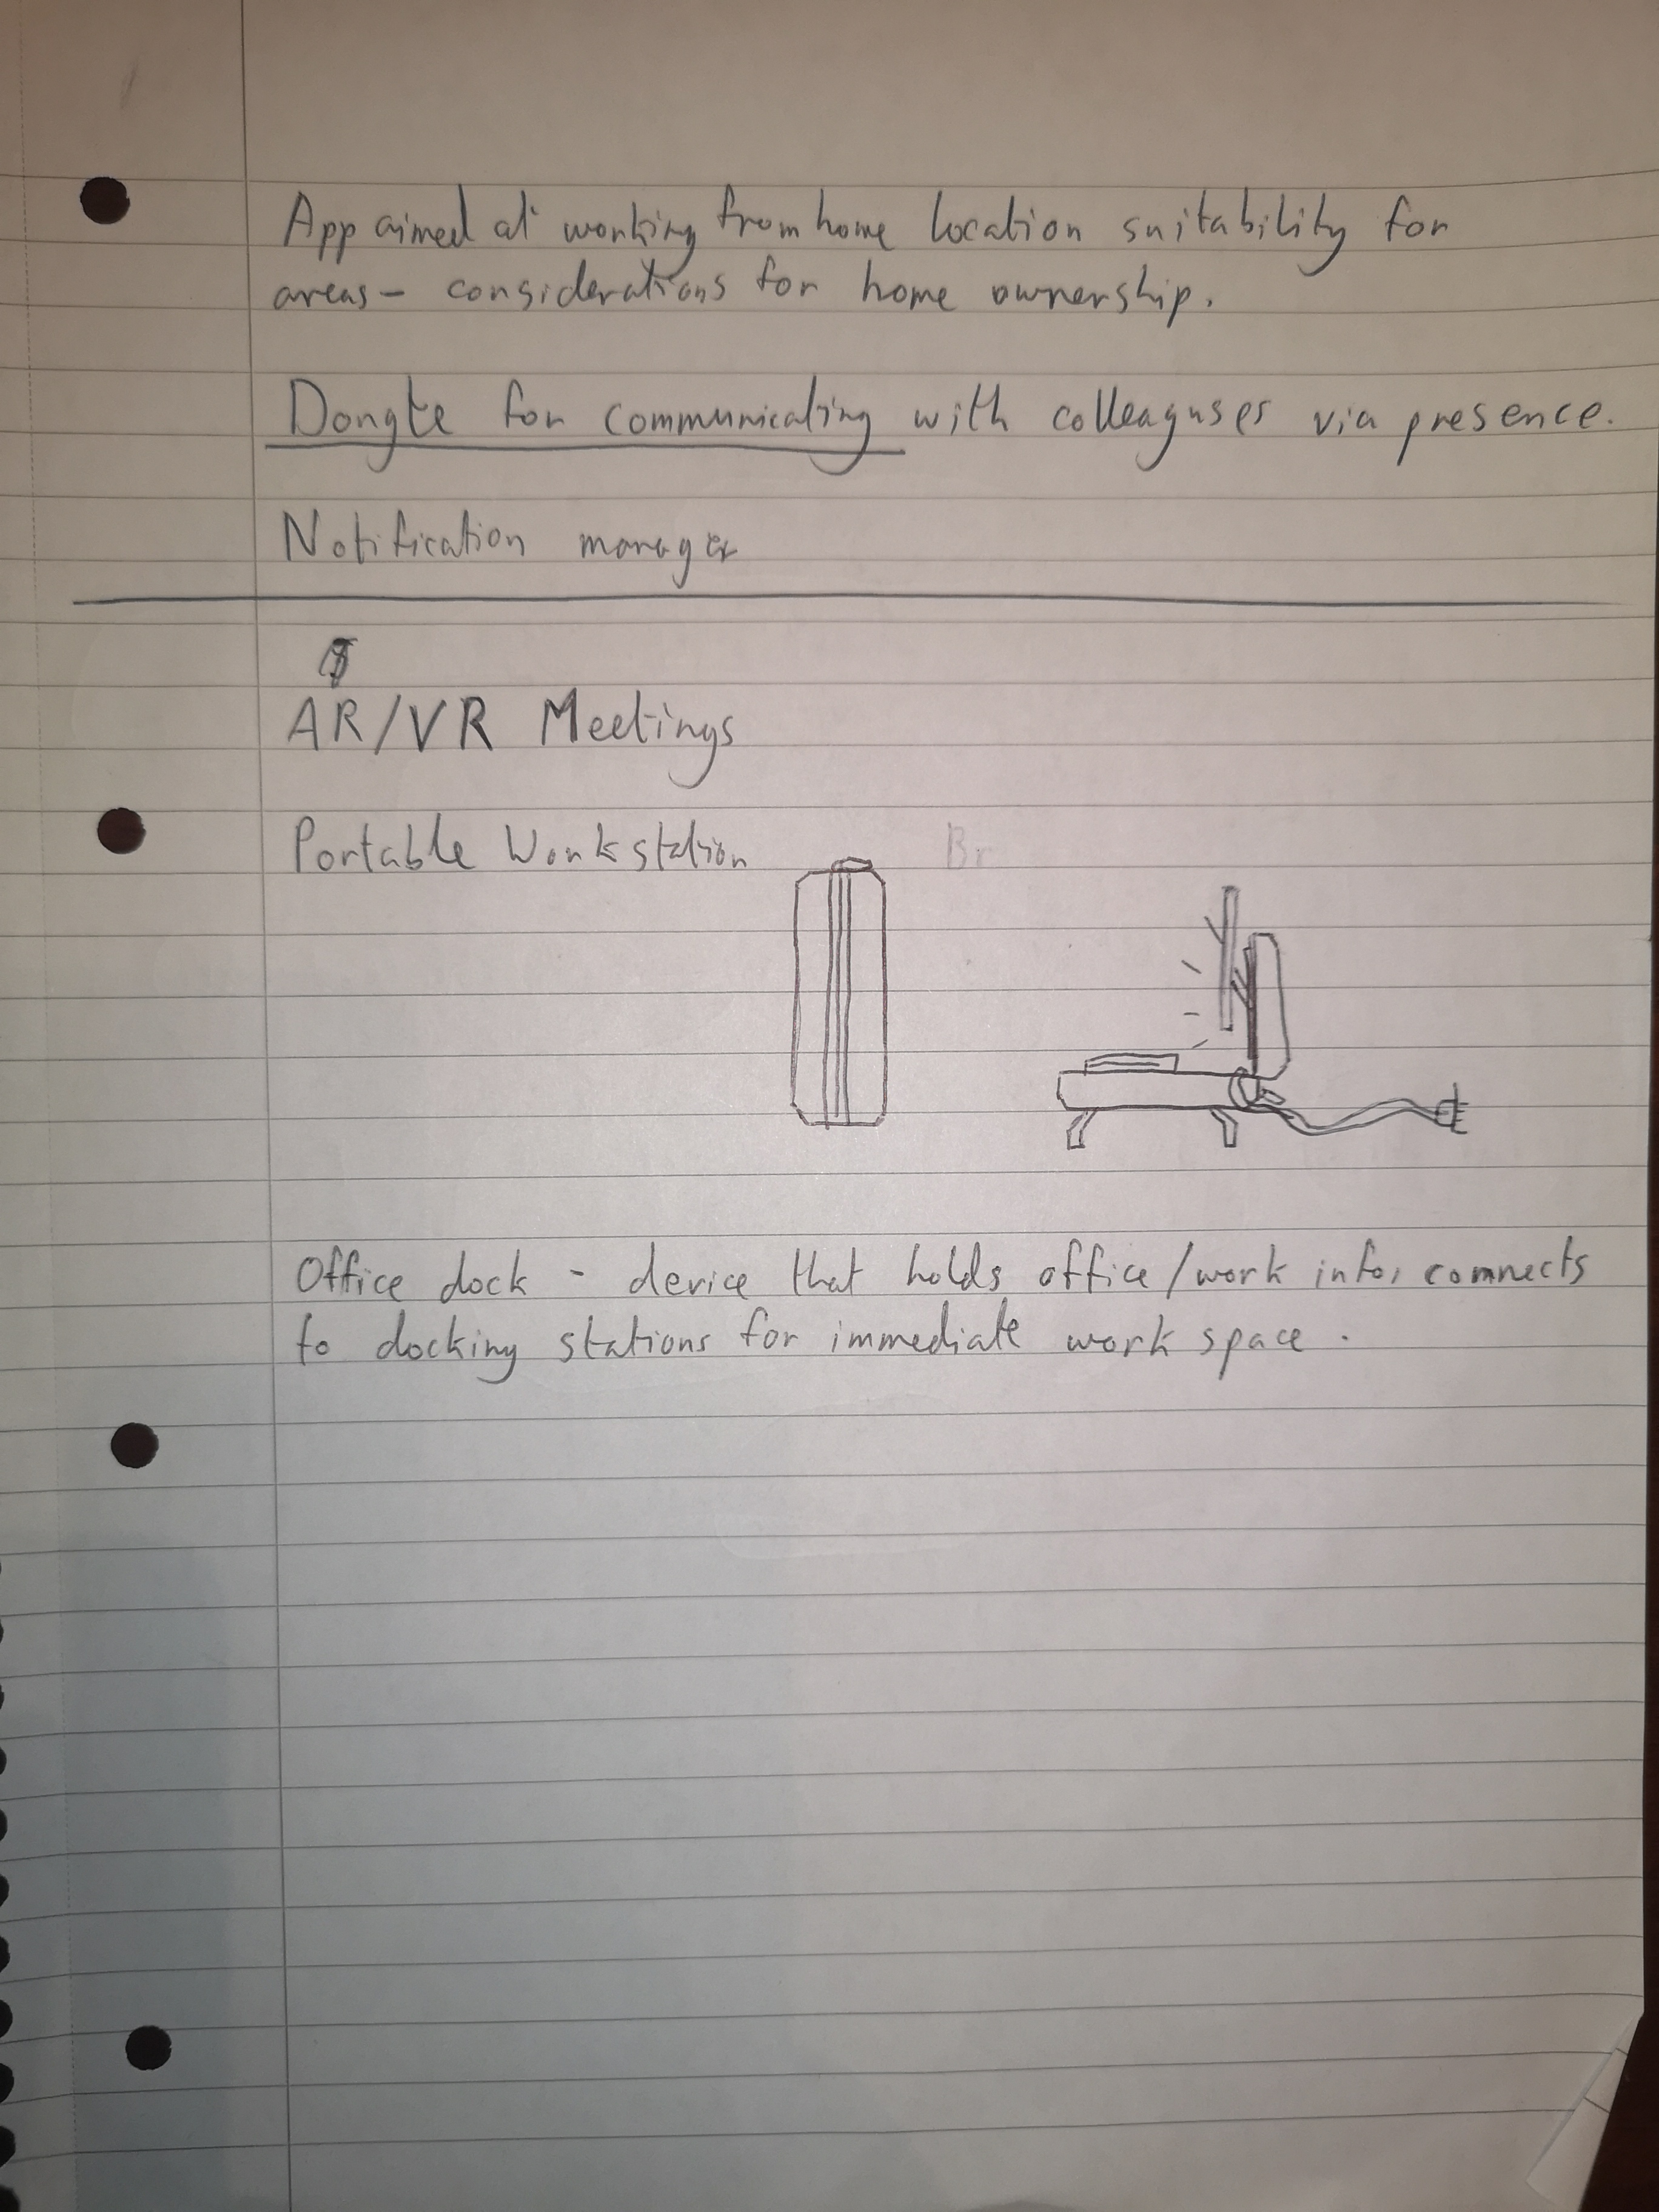 App aimed at working from home location suitability for
areas - considerations for home ownership.
Dongle for communicating with colleaguses via presence.
Notification manager
AR/VR Meetings
Portable Workstation
Br
Office dock - device that holds office/work info, connects
to docking stations for immediate work space.